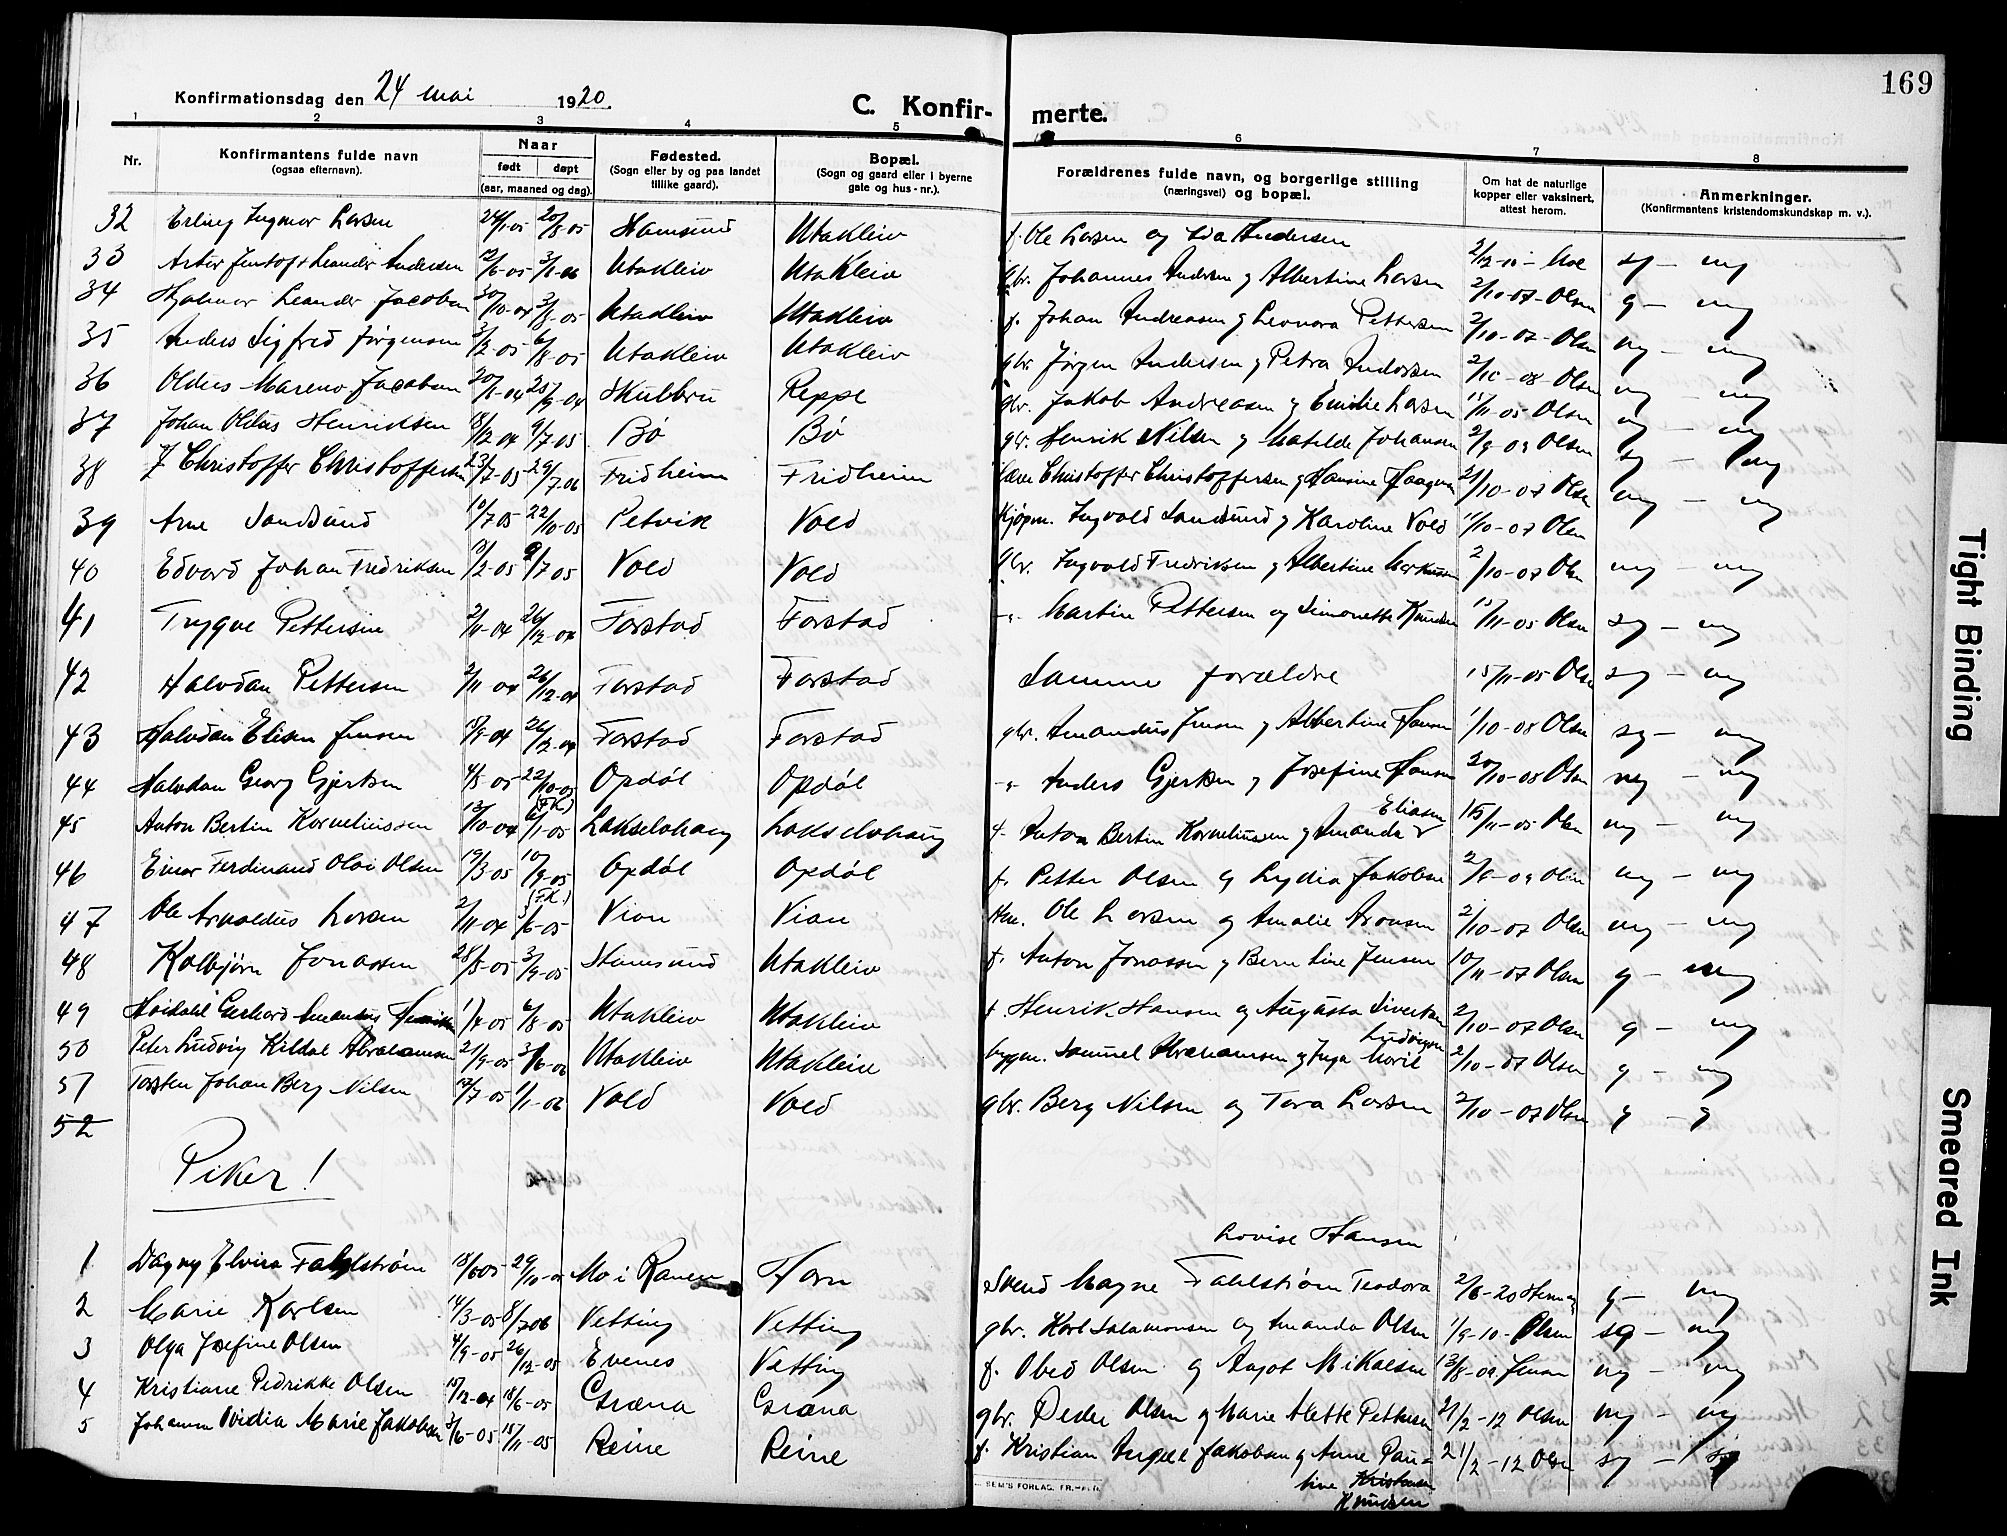 169
Konfirmationsdag den 24 mai 1920.
C. Konfir- merte.
1 2 3 4 5 6 7 8
Nr. Konfirmantens fulde navn (ogsaa efternavn). Naar født døpt (aar, maaned og dag). Fødested. (Sogn eller by og paa landet tillike gaard). Bopæl. (Sogn og gaard eller i byerne gate og hus-nr.). Forældrenes fulde navn, og borgerlige stilling (næringsvei) og bopæl. Om hat de naturlige kopper eller vaksinert, attest herom. Anmerkninger. (Konfirmantens kristendomskundskap m. v.).
32 Erling Ingmar Larsen 24/1-05 20/8-05 Stamsund Utakleiv f. Ole Larsen og Ida Andersen 2/12-11- Moe sg - mg
33 Leander Andersen 12/6-05 3/1-06 Utakleiv Utakleiv gbr. Johannes Andersen og Albertine Larsen 2/10-07-Olsen g - mg
34 Hjalmar Leander Jacobsen 30/10-04 3/8-05 Utakleiv Utakleiv f. Johan Andreasen og Leonora Pettersen 2/10-07-Olsen mg - mg
35 Anders Sigfred Jørgensen 3/2-05 6/8-05 Utakleiv Utakleiv gbr. Jørgen Andersen og Petra Andersen 2/10-08-Olsen mg - mg
36 Oldus Mareno Jacobsen 20/1-04 25/9-04 Skulbru Reppe gbr. Jakob Andreasen og Emilie Larsen 15/11-05 Olsen mg - mg
37 Johan Oldus Henriksen 18/12 04 9/7-05 Bø Bø gbr. Henrik Nilsen og Matilde Johansen 2/9-09 Olsen sg - mg
38 J Christoffer Christoffersen 23/7-05 29/7-06 Fridheim Fridheim Lærer Christoffer Christoffersen og Hansine Haagensen 21/10-07 Olsen mg - mg
39 Arne Sandsund 10/7 05 22/10-05 Petvik Vold Kjøpm. Ingvald Sandsund og Karoline Vold 1/10-07 Olsen
40 Edvard Johan Fredriksen 12/2-05 9/7 05 Vold Vold gbr. Ingvald Fredriksen og Albertine Markussen 2/10-07 Olsen mg - mg
41 Trygve Pettersen 2/11-04 26/12-04 Farstad Farstad -"- Martin Pettersen og Simonette Knudsen 15/11-05 Olsen sg - mg
42 Halvdan Pettersen 2/11 04 26/12-04 Farstad Farstad Samme forældre 15/11-05 Olsen sg - mg
43 Halvdan Elisen Jensen 18/9-04 26/12-04 Farstad Farstad gbr. Amandus Jensen og Albertine Hansen 1/10-08 Olsen sg - mg
44 Halvdan Georg Gjertsen 4/8-05 22/10-05 Opdøl Opdøl -"- Anders Gjertsen og Josefine Hansen 20/10-08 Olsen mg - mg
45 Anton Bertin Korneliussen 13/10-04 (FK.) 6/1-05 f. Anton Bertin Korneliussen og Amanda Eliasen 15/11-05 Olsen mg - mg
46 Einar Ferdinand Olai Olsen 19/3-05 10/9-05 Opdøl Opdøl f. Petter Olsen og Lydia Jakobsen 2/9-09 Olsen mg - mg
47 Ole Arnoldus Larsen 2/11-04 (FK.) /6-05 Vian Vian Ole Larsen og Amalie Aronsen 2/10-07 Olsen mg - mg
48 Kolbjørn Jonassen 28/5-05 3/9-05 Stamsund Utakleiv f. Anton Jonassen og Berntine Jensen 10/11-07 Olsen g - mg
49 Gerhard Amandus 1/4-05 6/8-05 Utakleiv Utakleiv f. Henrik Hansen og Augusta Sivertsen 2/10-07 Olsen g - mg
50 Peter Ludvig Kildal Abrahamsen 21/9-05 3/6-06 Utakleiv Utakleiv byggm. Samuel Abrahamsen og Inga Marie Ludvigsen 2/10-07 Olsen g - mg
51 Torsten Johan Berg Nilsen 17/7-05 1/1-06 Vold Vold gbr. Berg Nilsen og Tora Larsen 2/10-07 Olsen g - g
52
Piker!
Lovise Hansen
1 Dagny Elvira Fahlstrøm 18/6 05 29/10-05 Mo i Ranen Horn Svend Magne Fahlstrøm Teodora 2/6-20 g - mg
2 Marie Karlsen 14/3-05 8/7 06 Vetting Vetting gbr. Karl Salamonsen og Amanda Olsen 1/9-10-Olsen sg - mg
3 Olga Josefine Olsen 4/9-05 26/12-05 Evenes Vetting f. Obed Olsen og Aagot Mikalsen 13/8-09 Jensen mg - mg
4 Kristiane Pedrikke Olsen 15/12-04 18/6-05 Græna Græna gbr. Peder Olsen og Marie Alette Pettersen 21/2-12 Olsen mg - mg
5 Johanna Ovidia Marie Jakobsen 3/6-05 15/11-05 Reine Reine f. Kristian Angell Jakobsen og Anne Pau- 21/2-12 Olsen sg - sg
line Kristensen
Knudsen
SEM'S FORLAG, FR.HALD.
Tight Binding
Smeared Ink